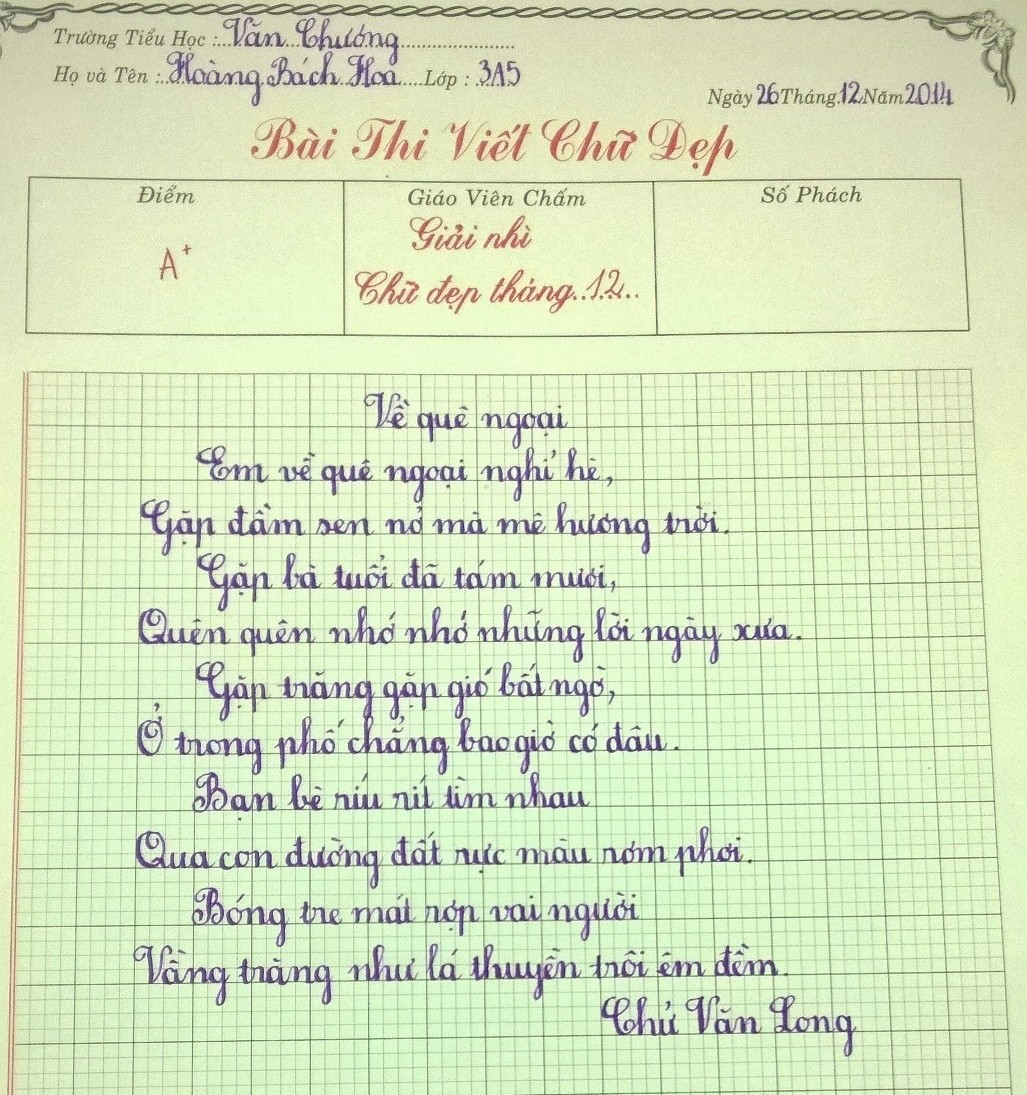 Trường Tiểu Học :..Văn...Chương......................
Họ và Tên :..Hoàng.Bách.Hoa....Lớp : .3A5
Ngày 26 Tháng.12.Năm 2014
Bài Thi Viết Chữ Đẹp
Điểm Giáo Viên Chấm Số Phách
A+ Giải nhì
Chữ đẹp tháng..12..
Về quê ngoại
Em về quê ngoại nghỉ hè,
Gặp đầm sen nở mà mê hương trời.
Gặp bà tuổi đã tám mươi,
Quên quên nhớ nhớ những lời ngày xưa.
Gặp trăng gặp gió bất ngờ,
Ở trong phố chẳng bao giờ có đâu.
Bạn bè ríu rít tìm nhau
Qua con đường đất rực màu rơm phơi.
Bóng tre mát rợp vai người
Vầng trăng như lá thuyền trôi êm đềm.
Chử Văn Long